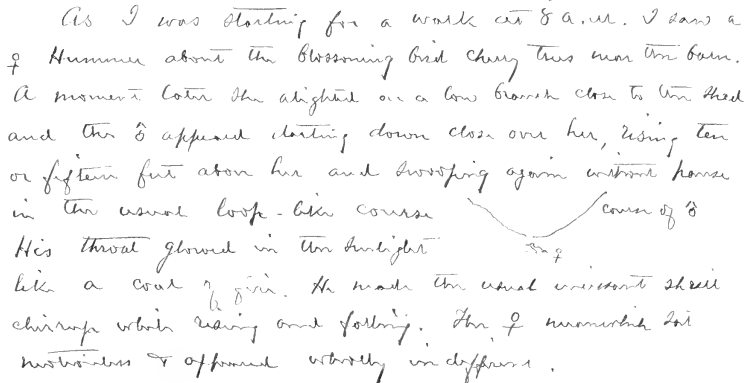 As I was starting for a walk at 8 a.m. I saw a
♀ Hummer about the blossoming bird cherry trees near the barn.
A moment later she alighted on a low branch close to the shed
and the ♂ appeared darting down close over her, rising ten
or fifteen feet above her and swooping again without pause
in the usual loop-like course course of ♂
♀
His throat glowed in the sunlight
like a coal of fire. He made the usual incessant shrill
chirrup while rising and falling. The ♀ meanwhile sat
motionless & appeared wholly indifferent.